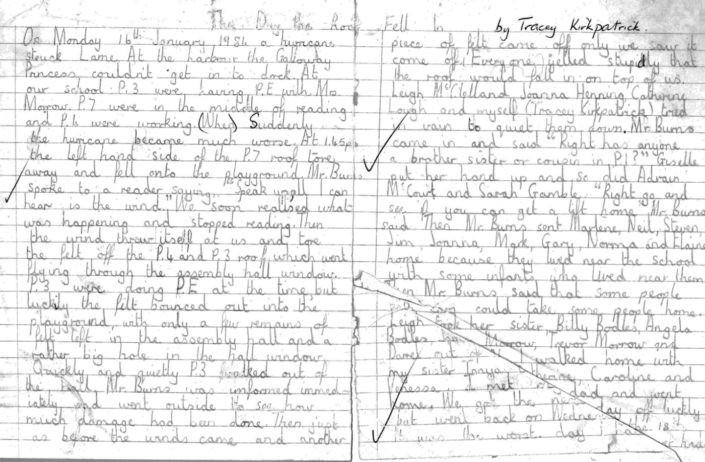 The Day the Roof Fell In
by Tracey Kirkpatrick.
On Monday 16th January 1984 a hurricane
struck Larne. At the harbour the Galloway
Princess, couldn't get in to dock. At
our school P.3 were having P.E with Mrs
Morrow. P.7 were in the middle of reading
and P.6 were working. (When) Suddenly
the hurricane became much worse. At 1.45pm
the left hand side of the P.7 roof tore
away and fell onto the playground. Mr. Burns
spoke to a reader saying, "Speak up, all I can
hear is the wind." We soon realised what
was happening and stopped reading. Then
the wind threw itself at us and tore
the felt off the P.4 and P.3 roof which went
flying through the assembly hall window.
P.3 were doing P.E at the time, but
luckily the felt bounced out into the
playground, with only a few remains of
felt left in the assembly hall and a
rather big hole in the hall window.
Quickly and quietly P.3 walked out of
the hall. Mr. Burns was informed immed-
iately and went outside to see how
much damage had been done. Then just
as before the winds came and another
piece of felt came off only we saw it
come off. Everyone yelled stupidly that
the roof would fall in on top of us.
Leigh McClelland, Joanna Henning, Catherine
Lough and myself (Tracey Kirkpatrick) tried
in vain to quiet them down. Mr. Burns
came in and said "Right has anyone
a brother sister or cousin in P.1?" Giselle
put her hand up and so did Adrain
McCourt and Sarah Gamble. "Right go and
see if you can get a lift home" Mr. Burns
said. Then Mr. Burns sent Marlene, Neil, Steven,
Jim, Joanna, Mark, Gary, Norma and Elaine
home because they lived near the school
with some infants who lived near them.
Then Mr. Burns said that some people
cars could take some people home.
Leigh took her sister, Billy Bodles, Angela
Bodles, Morrow, Trevor Morrow and
out. I walked home with
my sister Tonya, Caroline and
I met my dad and went
home. We got the day off luckily
but went back on Wednes 18
It was the worst day